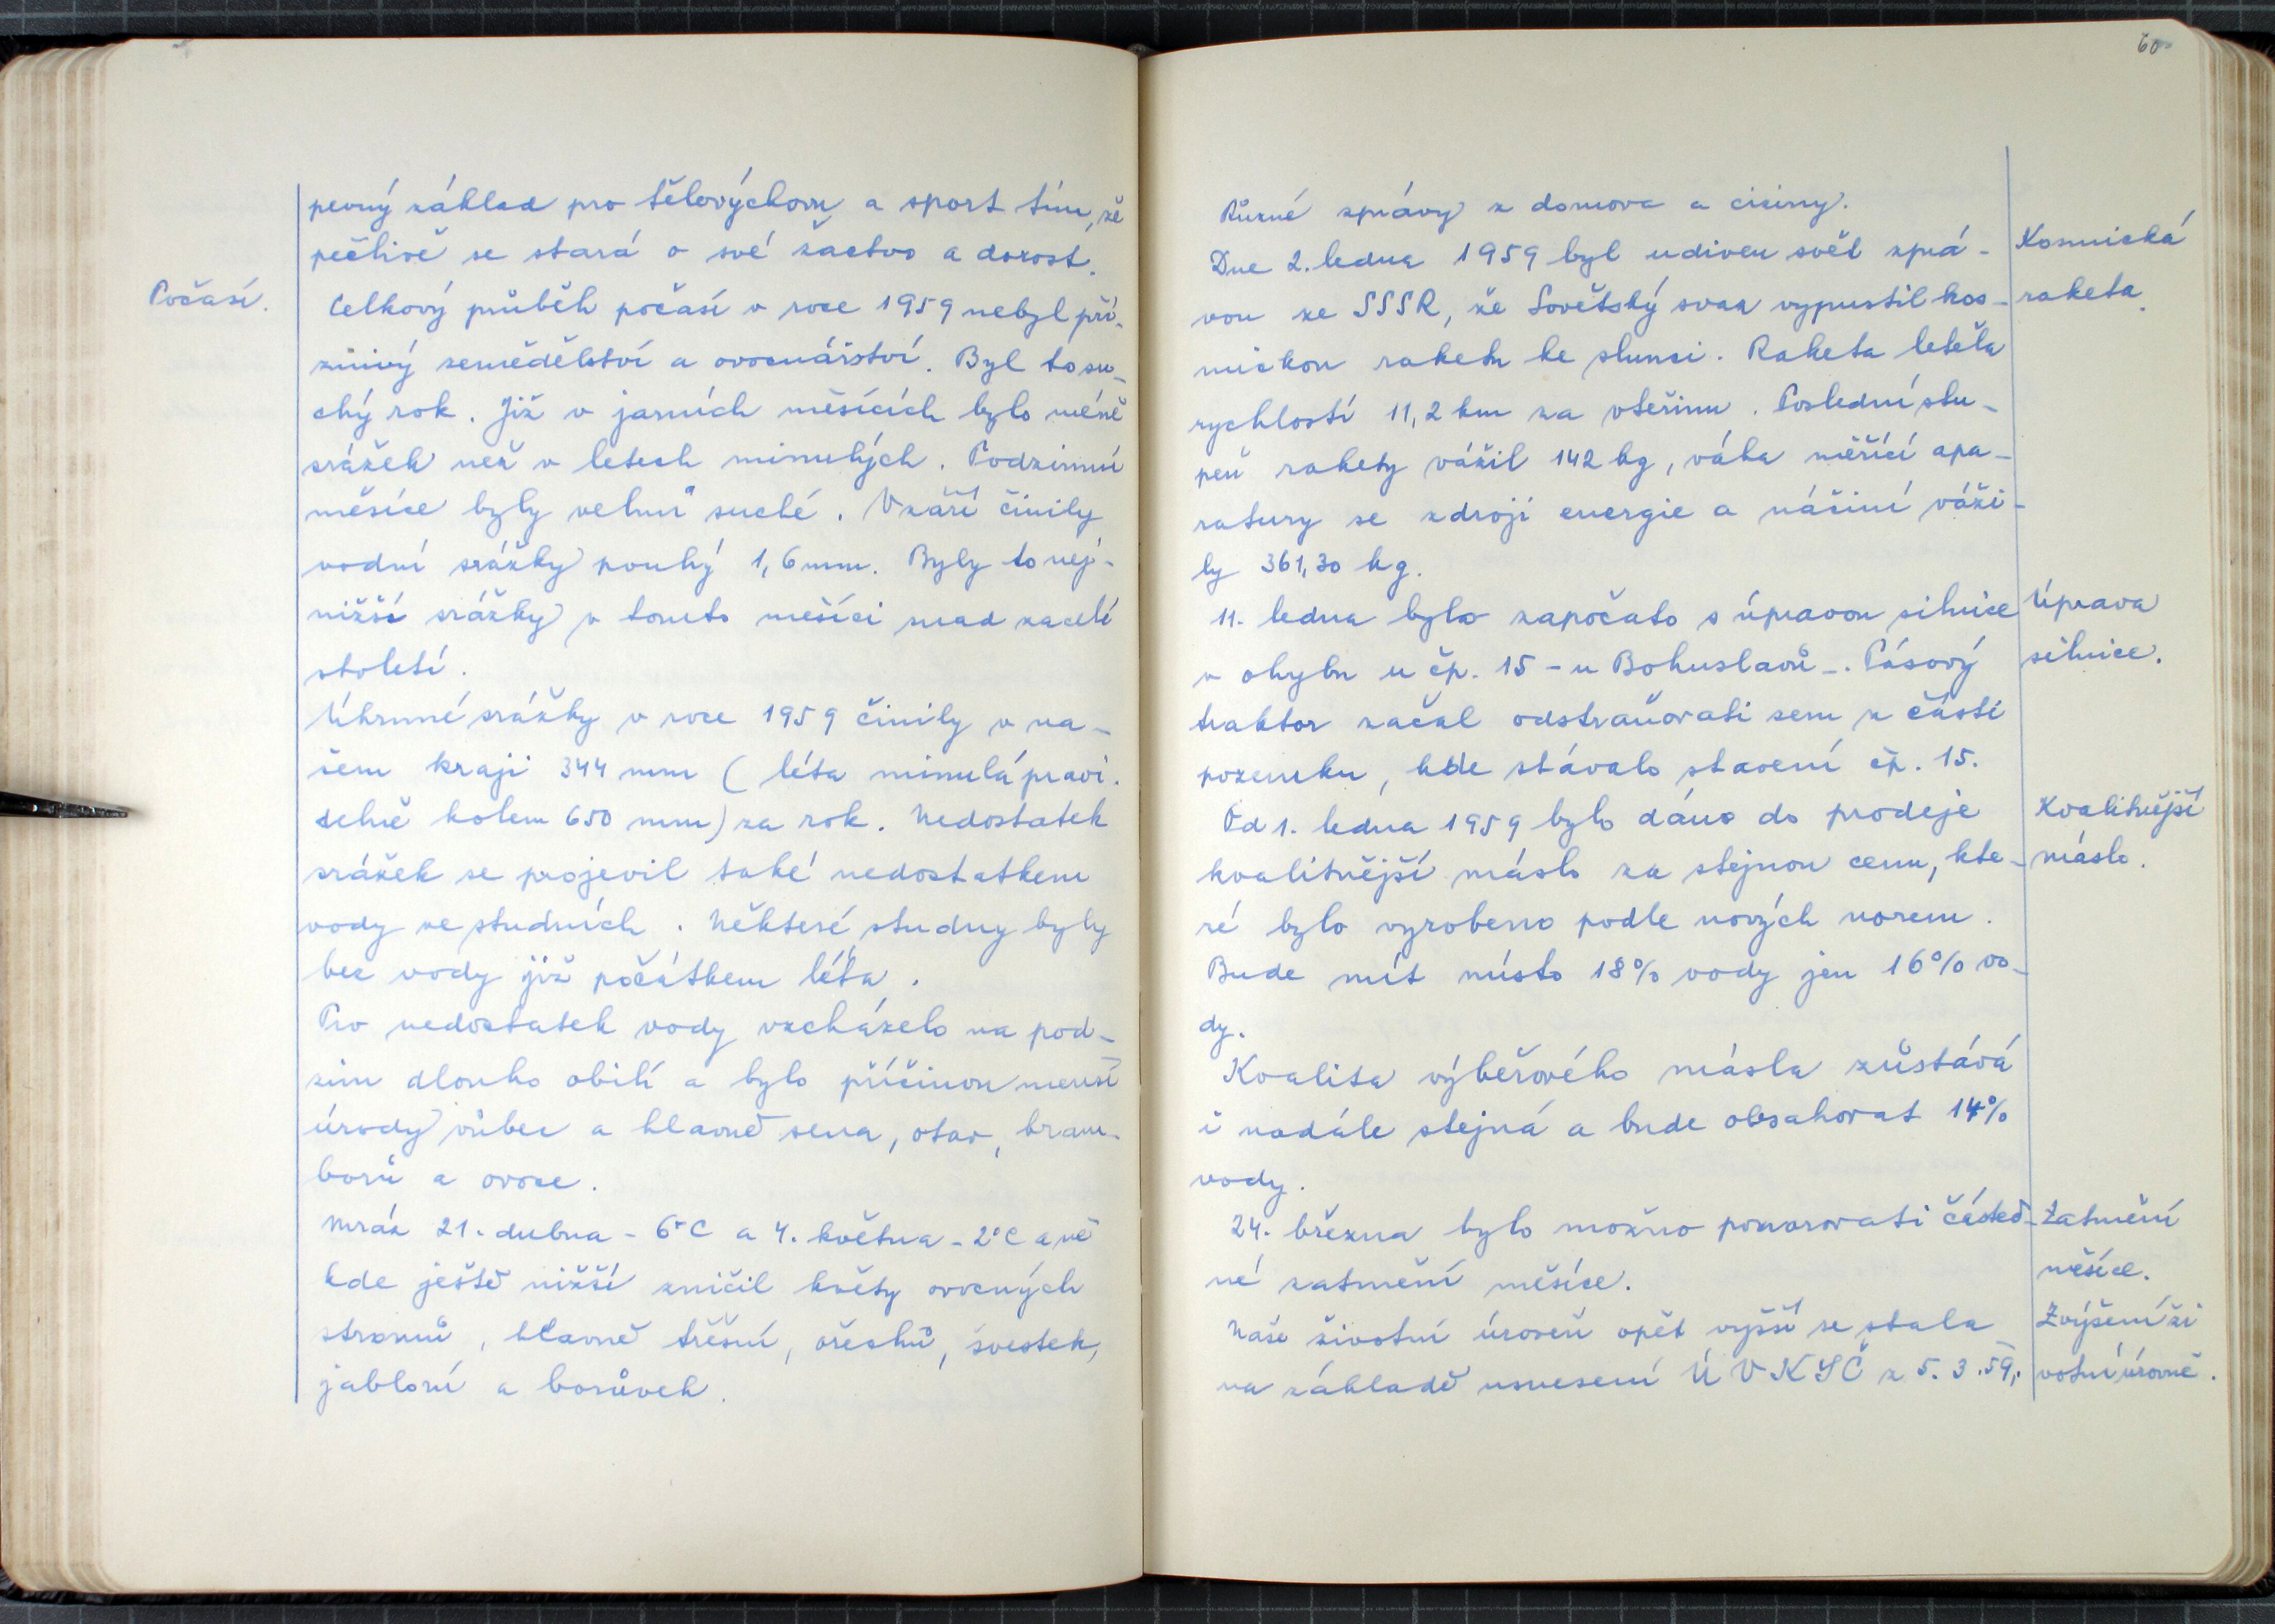 pevný základ pro tělovýchovu a sport tím, že
pečlivě se stará o své žactvo a dorost.
Počasí.
Celkový průběh počasí v roce 1959 nebyl pří-
znivý zemědělství a ovocnářství. Byl to su-
chý rok. Již v jarních měsících bylo méně
srážek než v letech minulých. Podzimní
měsíce byly velmi suché. V září činily
vodní srážky pouhý 1,6 mm. Byly to nej-
nižší srážky v tomto měsíci snad za celé
století.
Úhrnné srážky v roce 1959 činily v na-
šem kraji 344 mm (léta minulá pravi-
delně kolem 650 mm) za rok. Nedostatek
srážek se projevil také nedostatkem
vody ve studních. Některé studny byly
bez vody již počátkem léta.
Pro nedostatek vody vzcházelo na pod-
zim dlouho obilí a bylo příčinou menší
úrody vůbec a hlavně sena, otav, bram-
borů a ovoce.
Mráz 21. dubna - 6°C a 4. května - 2°C a ně
kde ještě nižší zničil květy ovocných
stromů, hlavně třešní, ořechů, švestek,
jabloní a borůvek.
60
Různé zprávy z domova a ciziny.
Dne 2. ledna 1959 byl udiven svět zprá-
vou ze SSSR, že Sovětský svaz vypustil kos-
mickou raketu ke slunci. Raketa letěla
rychlostí 11,2 km za vteřinu. Poslední stu-
peň rakety vážil 142 kg, váha měřící apa-
ratury se zdroji energie a nášiní váži-
ly 361,30 kg.
Kosmická
raketa.
11. ledna bylo započato s úpravou silnice
v ohybu u čp. 15 - u Bohuslavů -. Pásový
traktor začal odstraňovati zem z části
pozemku, kde stávalo stavení čp. 15.
Úprava
silnice.
Od 1. ledna 1959 bylo dáno do prodeje
kvalitnější máslo za stejnou cenu, kte-
ré bylo vyrobeno podle nových norem.
Bude mít místo 18% vody jen 16% vo-
dy.
Kvalitnější
máslo.
Kvalita výběrového másla zůstává
i nadále stejná a bude obsahovat 14%
vody.
24. března bylo možno pozorovati částeč-
né zatmění měsíce.
Zatmění
měsíce.
Naše životní úroveň opět vyšší se stala
na základě usnesení ÚV KSČ z 5. 3. 59,
Zvýšení ži
votní úrovně.